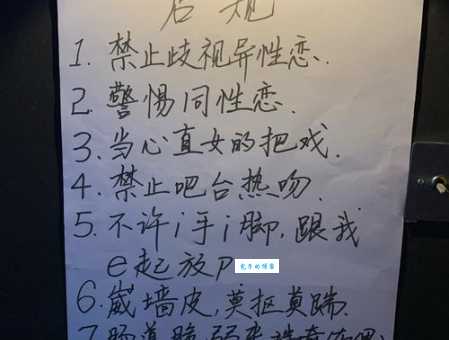 店规
1. 禁止歧视异性恋.
2. 警惕同性恋.
3. 当心直女的把戏.
4. 禁止吧台热吻.
5. 不许i手i脚,跟我
e起放P
6. 崴墙皮,莫抠莫踹.
7. 肠道脆弱